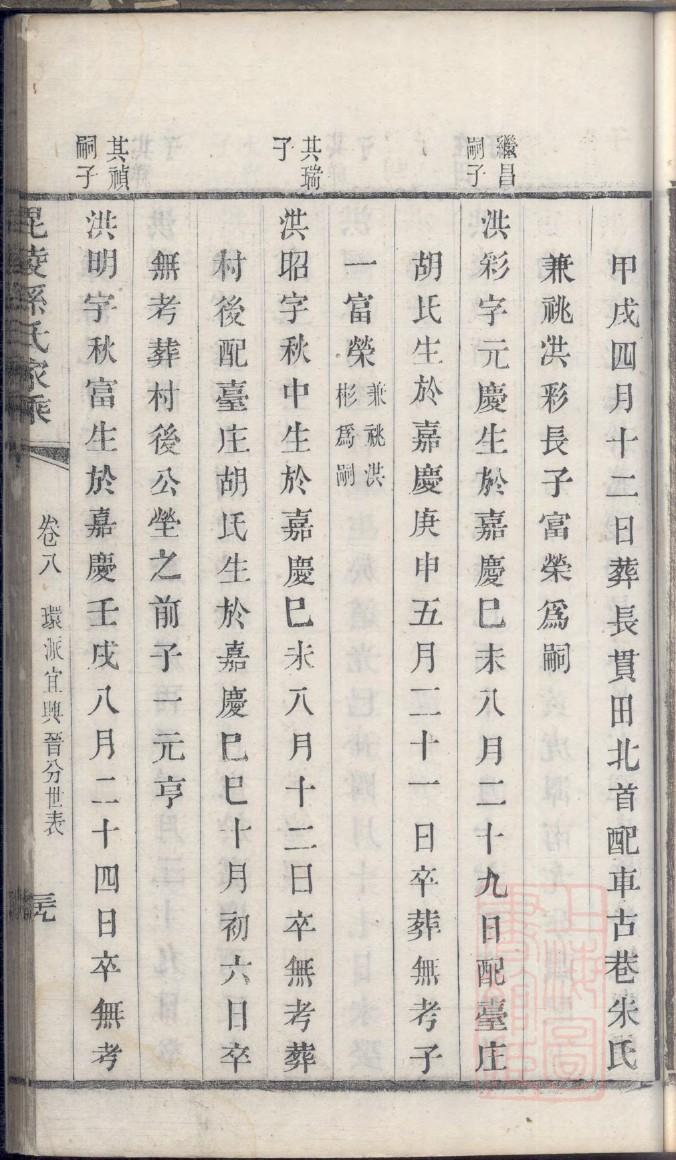 甲戌四月十二日葬長貫田北首配車古巷朱氏
兼祧洪彩長子富榮爲嗣
繼昌
嗣子
洪彩字元慶生於嘉慶巳未八月二十九日配臺庄
胡氏生於嘉慶庚申五月二十一日卒葬無考子
一富榮
兼祧洪
彬爲嗣
其瑞
子
洪昭字秋中生於嘉慶巳未八月十二日卒無考葬
村後配臺庄胡氏生於嘉慶巳巳十月初六日卒
無考葬村後公塋之前子一元亨
其禎
嗣子
洪明字秋富生於嘉慶壬戌八月二十四日卒無考
毘陵孫氏家乘
卷八
環派宜興晉分世表